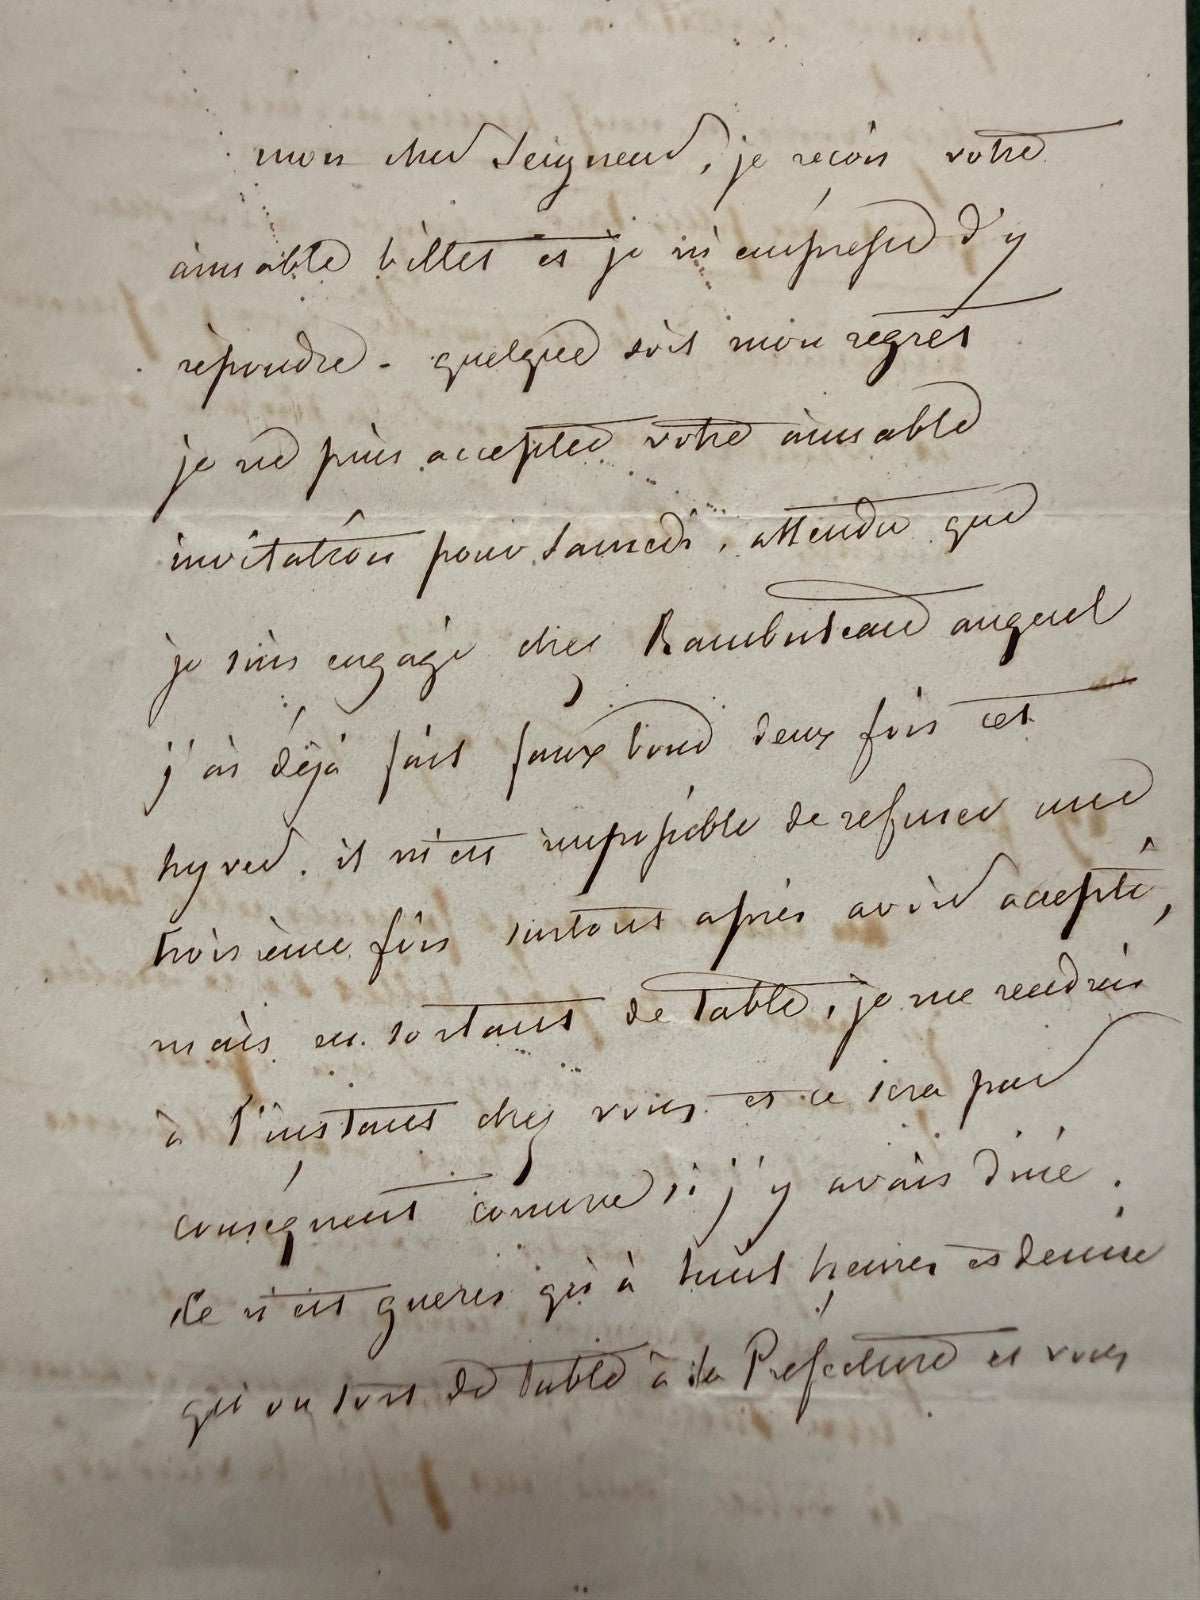 mon cher Seigneur, je reçois votre
aimable billet et je m'empresse d'y
répondre - quelque soit mon regret
je ne puis accepter votre aimable
invitation pour samedi, attendu que
je suis engagé chez Rambuteau auquel
j'ai déjà fait faux bond deux fois cet
hyver. il m'est impossible de refuser une
troisième fois surtout après avoir accepté,
mais en sortant de table, je me rendrai
à l'instant chez vous et ce sera par
conséquent comme si j'y avais diné.
Ce n'est gueres qu'à huit heures et demie
qu'on sort de table à la Préfecture et vous